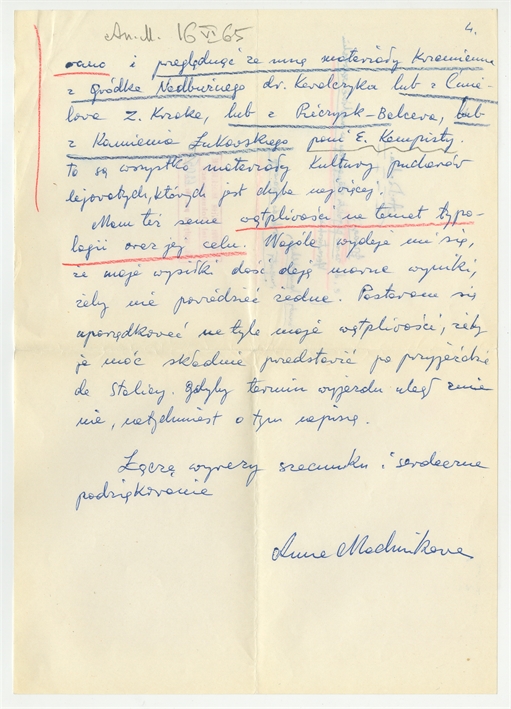 An. M. 16 VI 65
4.
rano i przeglądnąć ze mną materiały krzemienne
z Gródka Nadbużnego dr. Kowalczyka lub z Ćmie-
lowa Z. Krzaka, lub z Pieczysk-Balcera, lub
z Kamienia Łukawskiego pani E. Kempisty.
to są wszystko materiały Kultury pucharów
lejowatych, których jest chyba najwięcej.
Mam też same wątpliwości na temat typo-
logii oraz jej celu. Wogóle wydaje mi się,
że moje wysiłki dość dają marne wyniki,
żeby nie powiedzieć żadne. Postaram się
uporządkować na tyle moje wątpliwości, żeby
je móc składnie przedstawić po przyjeździe
do Stolicy. Gdyby termin wyjazdu uległ zmia
nie, natychmiast o tym napiszę.
Łączę wyrazy szacunku i serdeczne
podziękowanie
Anna